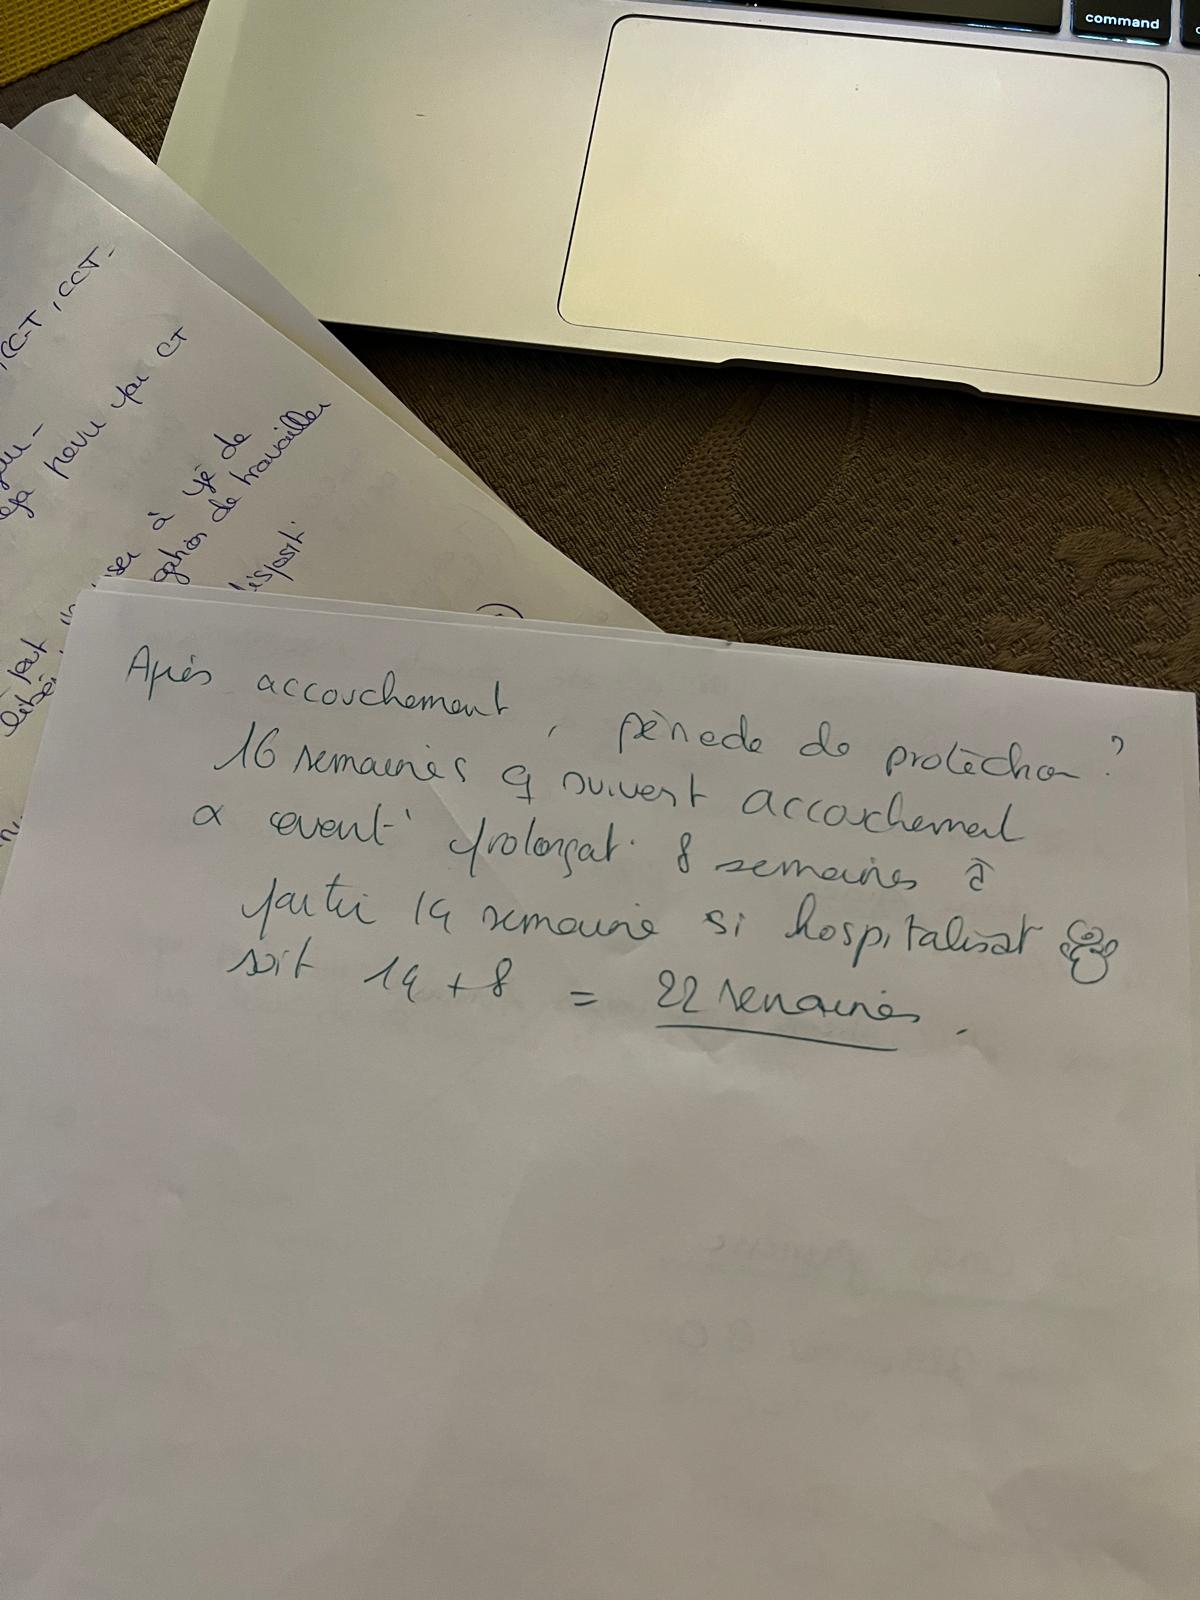 command
, CCT, CCT-
par CT
à pé de
de travailler
Après accouchement, période de protection ?
16 semaines q suivent accouchement
α event¹ prolongat° 8 semaines à
partir 14 semaine si hospitalisat
soit 14 + 8 = 22 semaines.